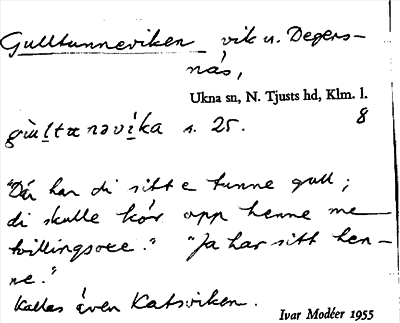 Gulltunneviken vik u. Degers-
näs,
Ukna sn, N. Tjusts hd, Klm. l.
8
gùḷtənəvíka s. 25.
"Där har di sitt e tunne gull;
di skulle kör opp henne me
tvillingsoxe." "Ja har sitt hen-
ne."
Kallas även Katsviken.
Ivar Modéer 1955